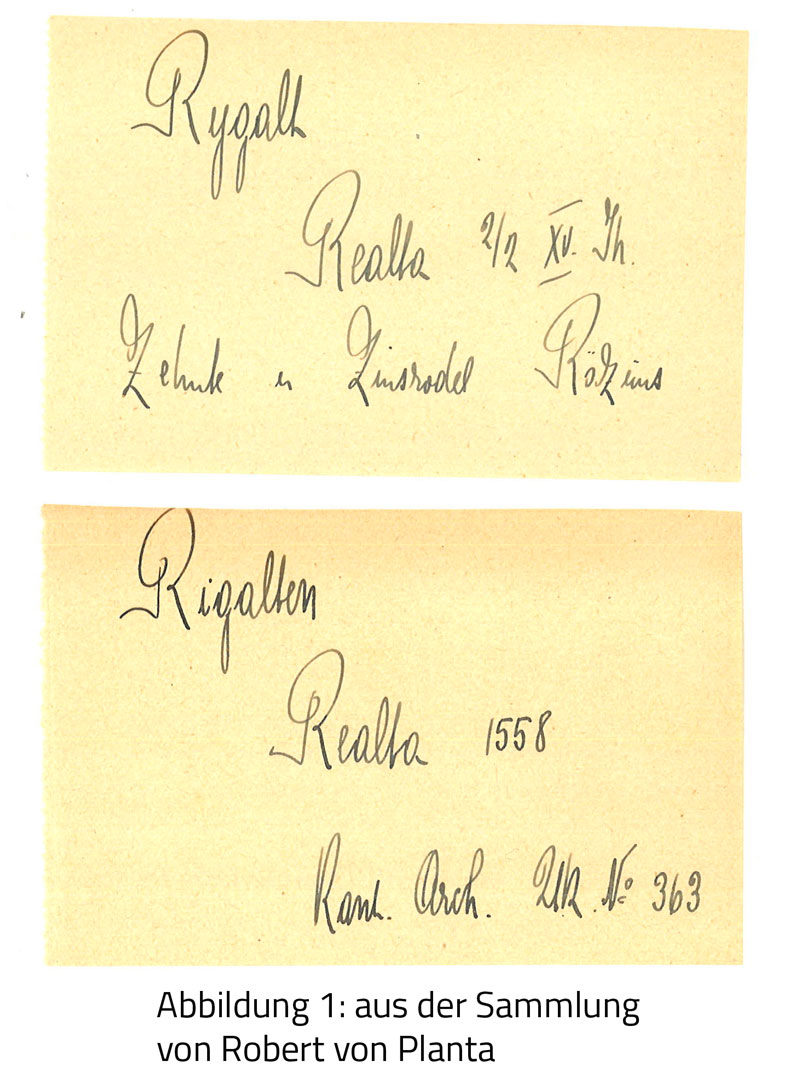 Rygalt
Realta 2/2 XV. Jh.
Zehnte u Zinsrodel Räzüns
Rigalten
Realta 1558
Kant. Arch. Urk. No 363
Abbildung 1: aus der Sammlung
von Robert von Planta